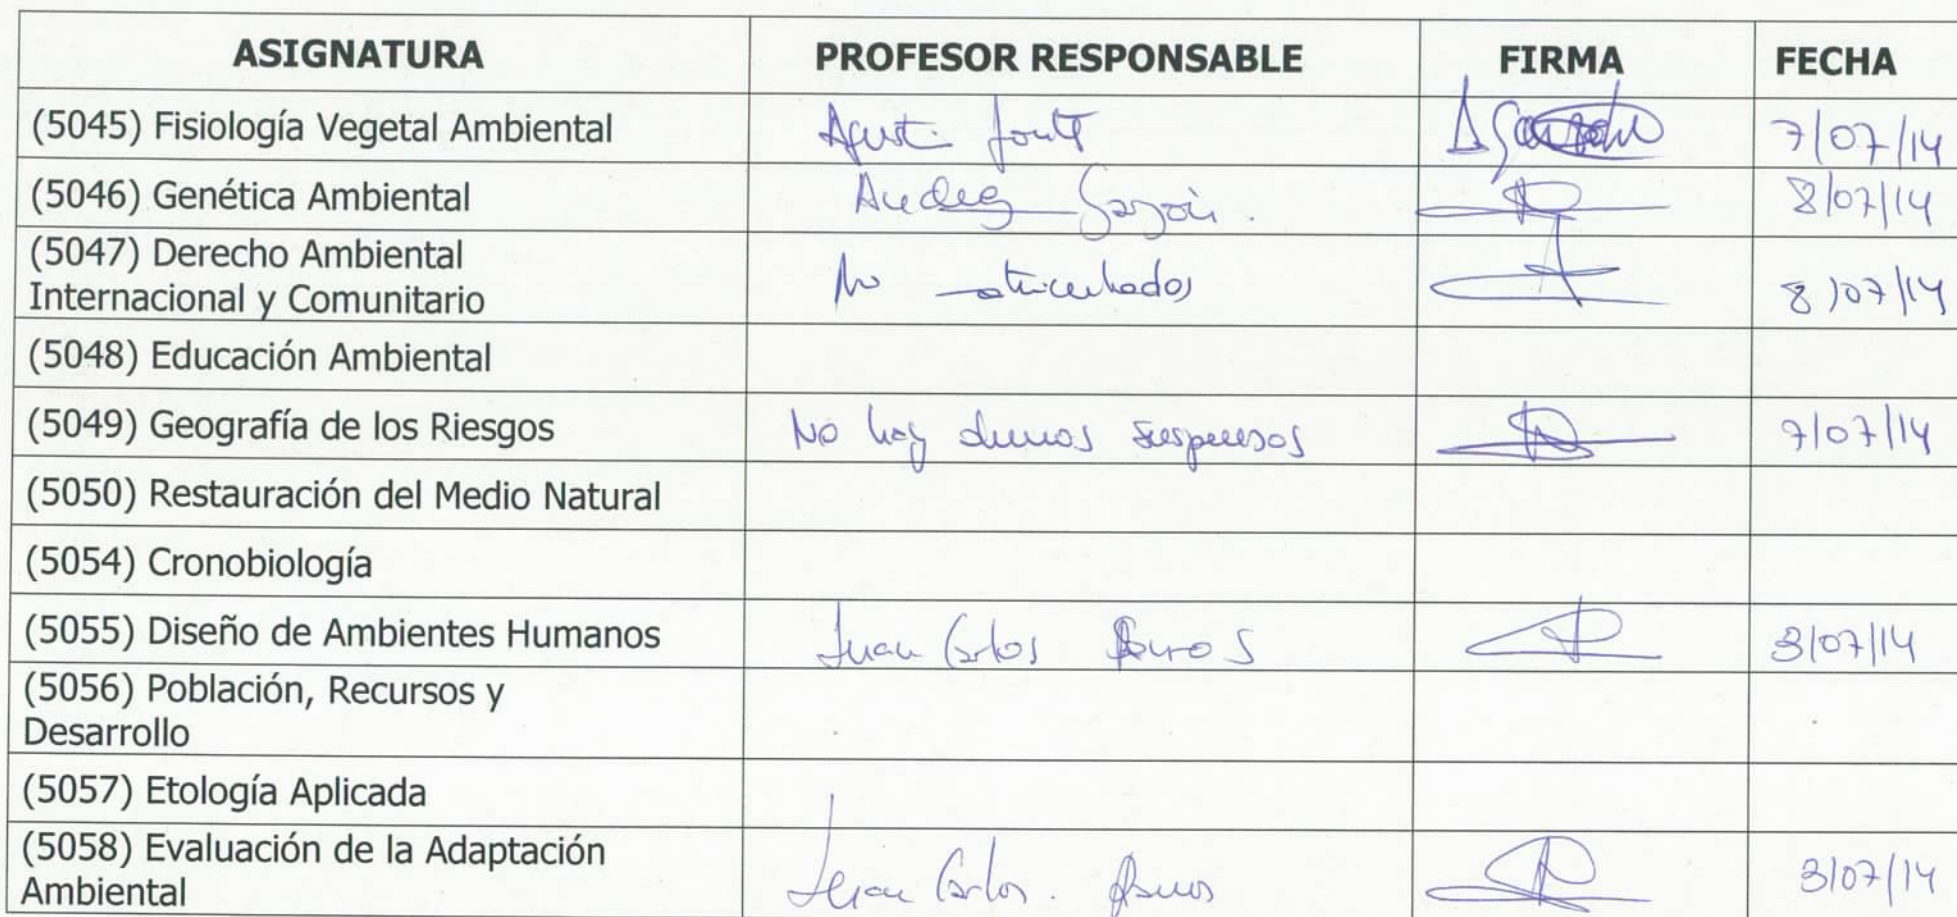 ASIGNATURA PROFESOR RESPONSABLE FIRMA FECHA
(5045) Fisiología Vegetal Ambiental Agustí 7/07/14
(5046) Genética Ambiental 8/07/14
(5047) Derecho Ambiental
Internacional y Comunitario No 8/07/14
(5048) Educación Ambiental
(5049) Geografía de los Riesgos No hay alumnos suspensos 7/07/14
(5050) Restauración del Medio Natural
(5054) Cronobiología
(5055) Diseño de Ambientes Humanos Juan Carlos 3/07/14
(5056) Población, Recursos y
Desarrollo
(5057) Etología Aplicada
(5058) Evaluación de la Adaptación
Ambiental Juan Carlos. 3/07/14